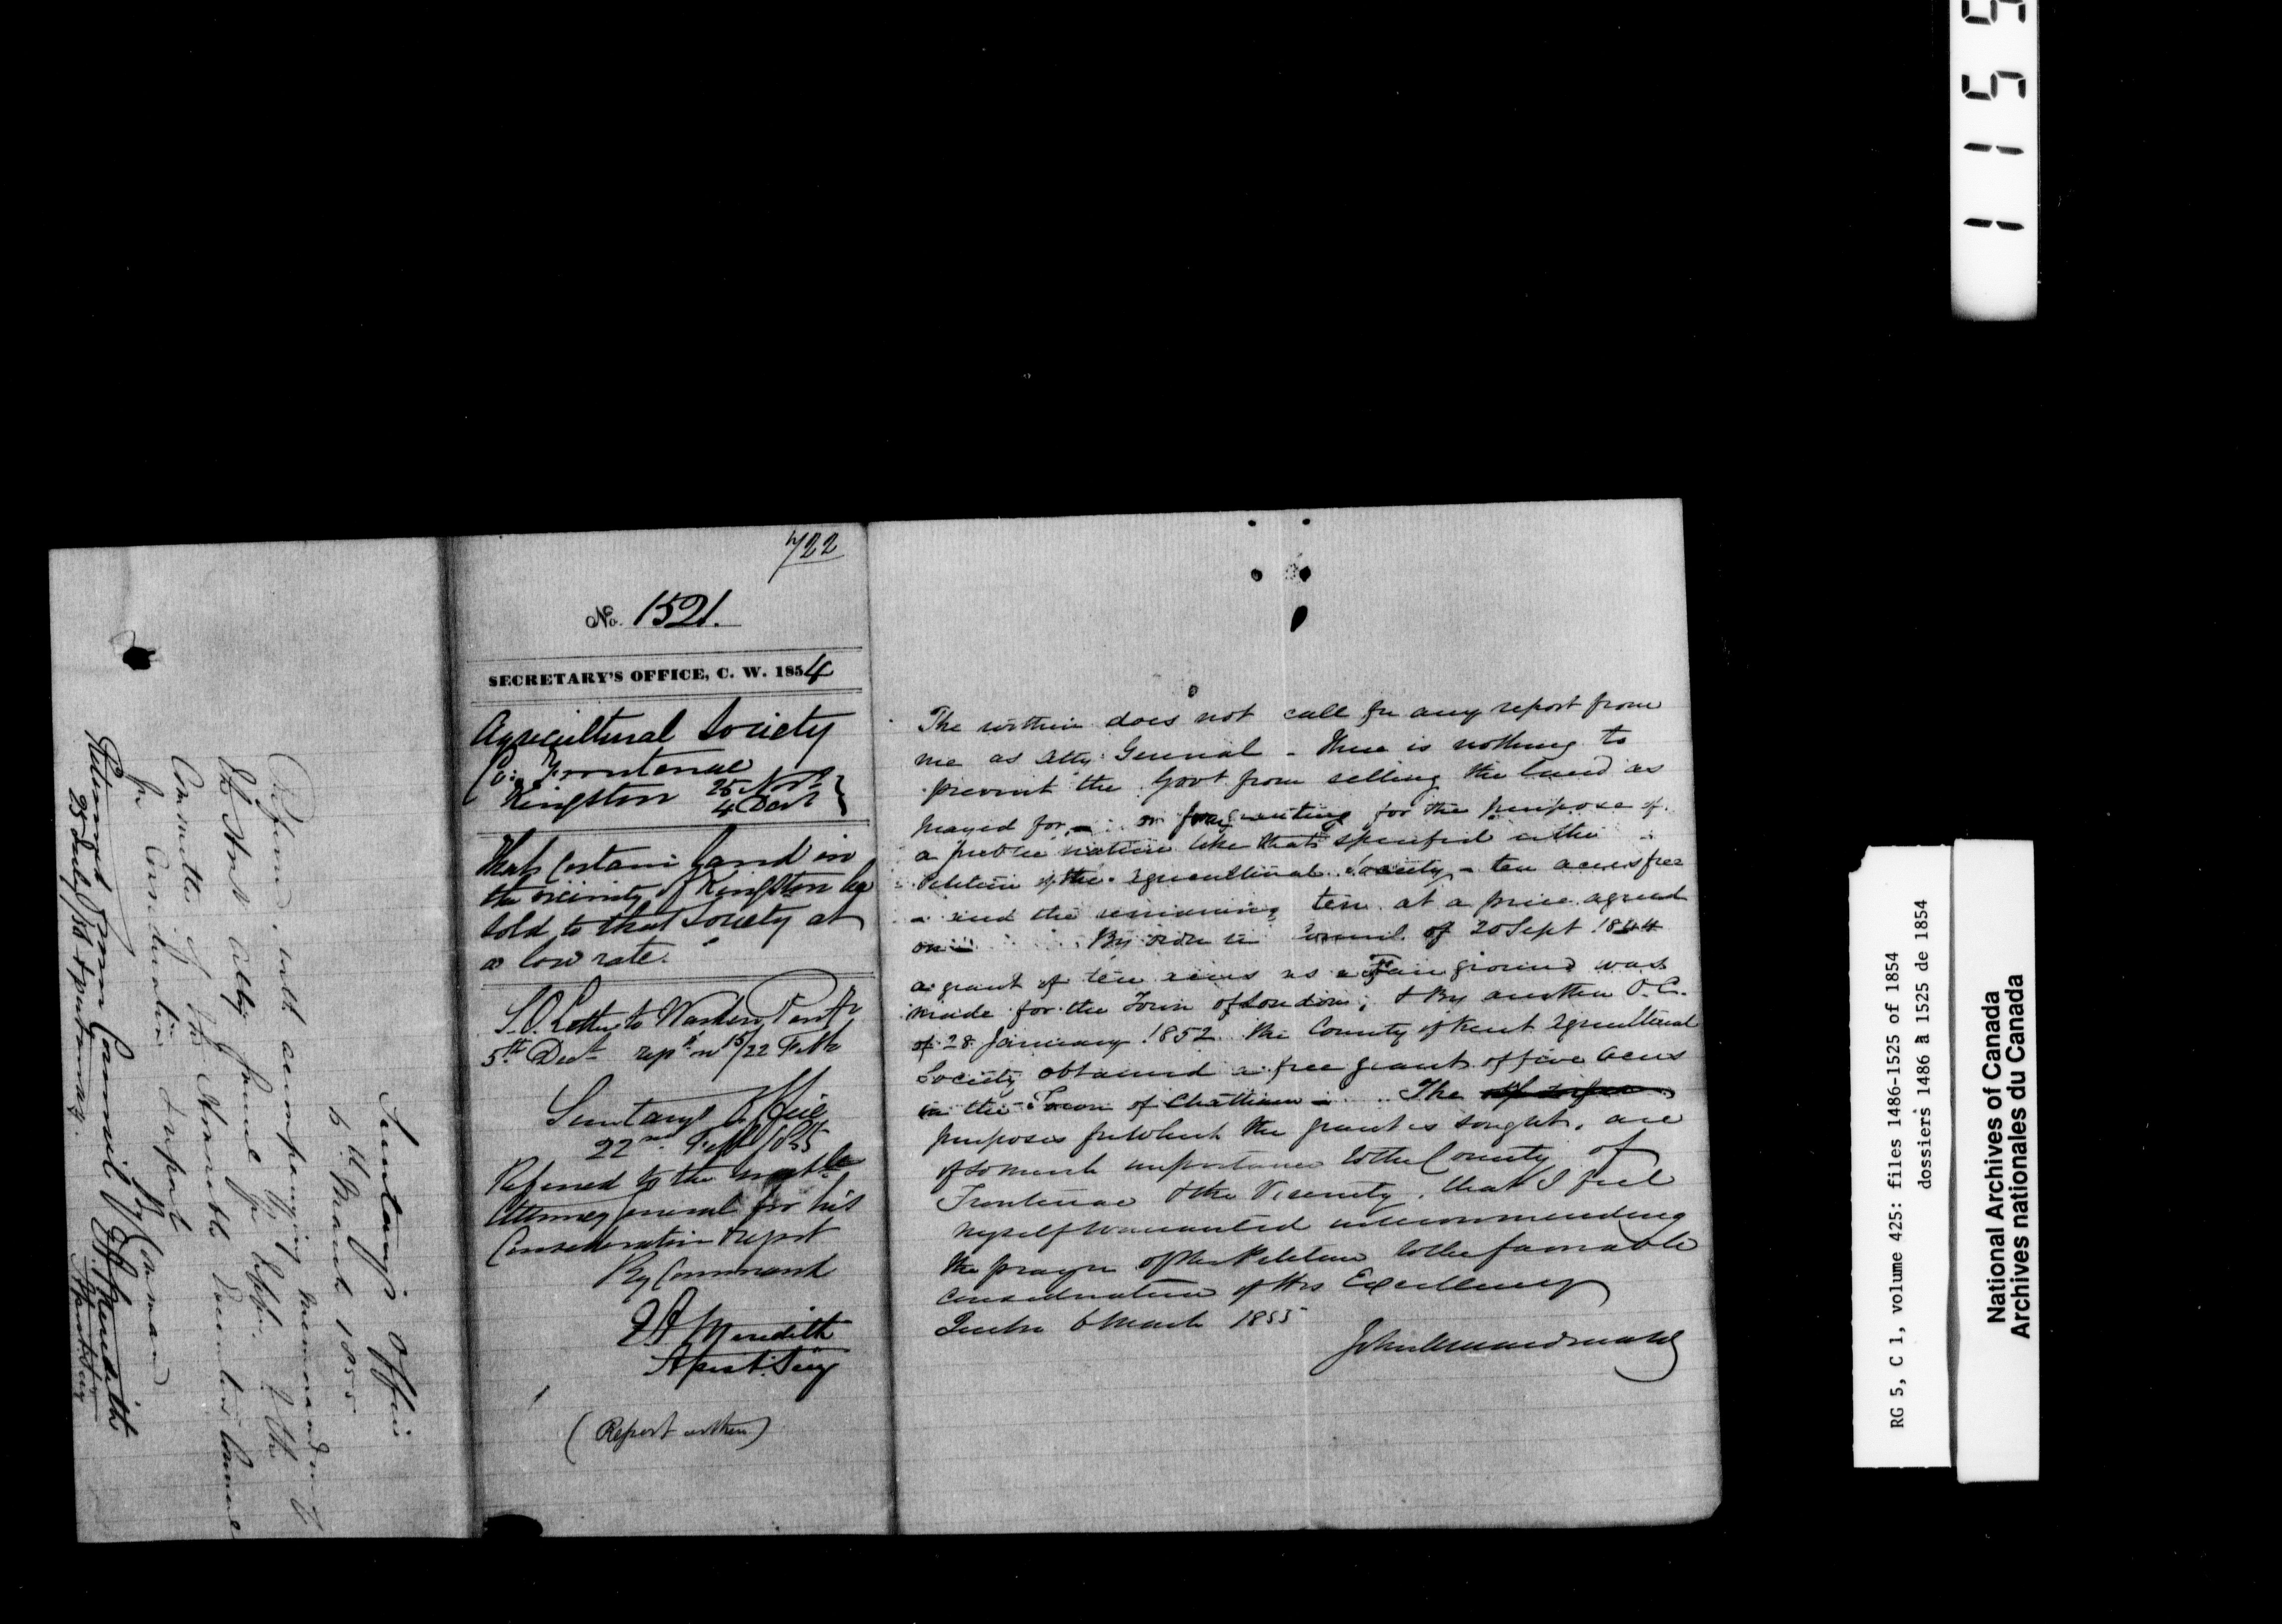 722
No. 1521.
SECRETARY'S OFFICE, C. W. 1854
Agricultural Society
Co: Frontenac
Kingston 25 Novr
4 Decr
That certain Land in
the vicinity of Kingston be
sold to that Society at
a low rate.
S.O. Letter to Warden
5th Decr 15/22 Feb
Secretary's Office
22nd Feb 1855
Referred to the Honble
Attorney General for his
Consideration & report
By Command
E A Meredith
Assist. Secy
(Report within)
The within does not call for any report from
me as Atty General - There is nothing to
prevent the Govt from selling the land as
prayed for - or from granting for the purpose of
a public nature like that specified in the
Petition of the Agricultural Society - ten acres free
- and the remaining ten at a price agreed
on - By order in Council of 20 Sept 1844
a grant of ten acres as a Fair ground was
made for the Town of London; & By another O.C.
of 28 January 1852 the County of Kent Agricultural
Society obtained a free grant of five acres
in the Town of Chatham - The
purposes for which the grant is sought, are
of so much importance to the County of
Frontenac & the Vicinity, that I feel
myself warranted in recommending
the prayer of the Petition to the favorable
consideration of His Excellency
Quebec 6 March 1855
John A Macdonald
Secretary's Office
6th March 1855
Referred, with accompanying memorandum by
the Honl Atty General for Upper C the
Committee of the Honorable Executive Council
for Consideration & report
By Command
E A Meredith
Assist Secy
Returned from Council
RG 5, C 1, volume 425: files 1486-1525 of 1854
dossiers 1486 à 1525 de 1854
National Archives of Canada
Archives nationales du Canada